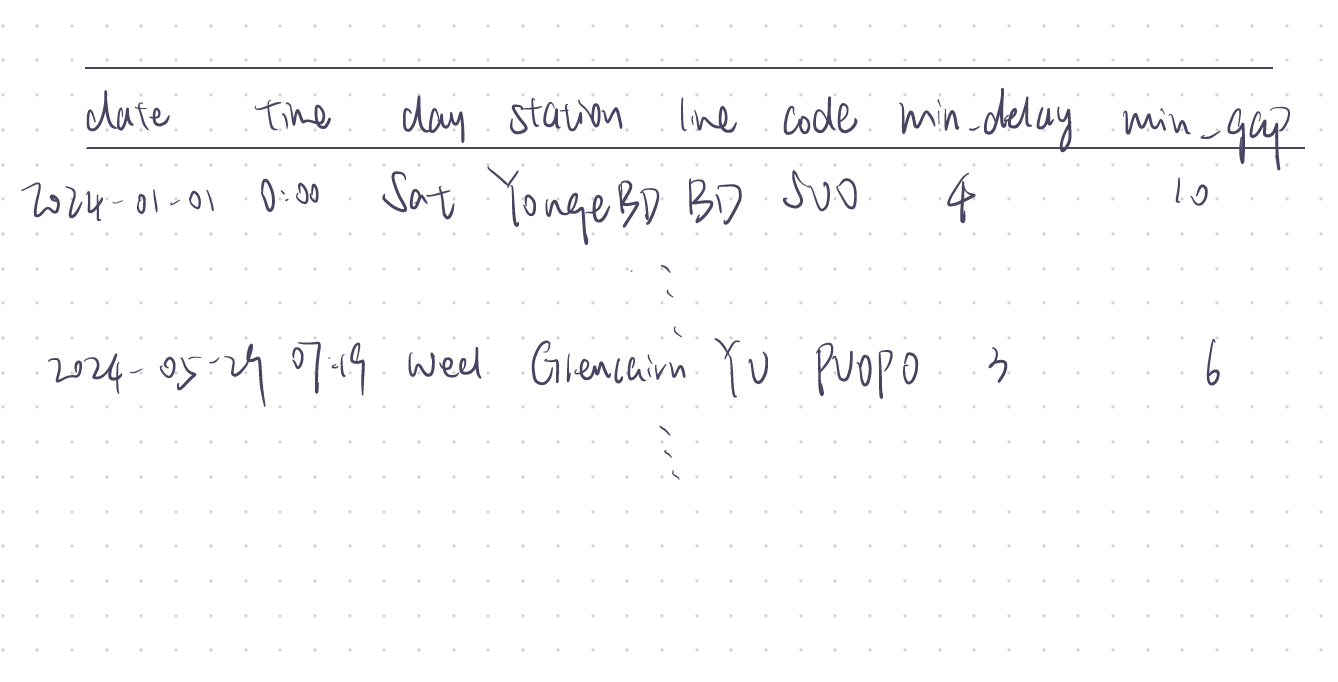 date time day station line code min_delay min_gap
2024-01-01 0:00 Sat YongeBD BD SUO 4 10
2024-05-29 07:19 Wed Glencairn YU PUOPO 3 6